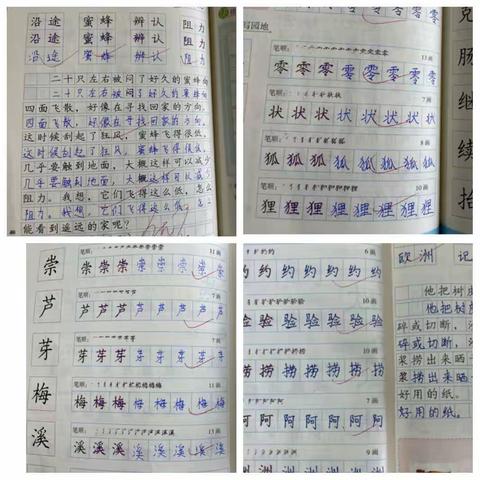 沿途 蜜蜂 辨认 阻力
沿途 蜜蜂 辨认 阻力
沿途 蜜蜂 辨认 阻力
二十只左右被闷了好久的蜜蜂向
二十只左右被闷了好久的蜜蜂向
四面飞散，好像在寻找回家的方向。
四面飞散，好像在寻找回家的方向。
这时候刮起了狂风，蜜蜂飞得很低，
这时候刮起了狂风，蜜蜂飞得很低，
几乎要触到地面，大概这样可以减少
几乎要触到地面，大概这样可以减少
阻力。我想，它们飞得这么低，怎么
阻力。我想，它们飞得这么低，怎么
能看到遥远的家呢？
写园地
克
肠
继
续
抬
笔顺： 13画
零 零 零 零 零 零 零
笔顺： 7画
状 状 状 状 状 状 状
8画
狐 狐 狐 狐 狐 狐 狐
10画
狸 狸 狸 狸 狸 狸 狸
崇
芦
芽
梅
溪
笔顺： 11画
崇 崇 崇 崇 崇 崇 崇
笔顺： 7画
芦 芦 芦 芦 芦 芦 芦
笔顺： 7画
芽 芽 芽 芽 芽 芽 芽
笔顺： 11画
梅 梅 梅 梅 梅 梅 梅
笔顺： 13画
溪 溪 溪 溪 溪 溪 溪
6画
约 约 约 约 约 约
10画
验 验 验 验 验 验
10画
捞 捞 捞 捞 捞 捞
7画
阿 阿 阿 阿 阿 阿
9画
洲 洲 洲 洲 洲
欧洲 记
他把树皮
他把树
碎或切断，
碎或切断，
浆捞出来晒
浆捞出来晒
好用的纸。
好用的纸。